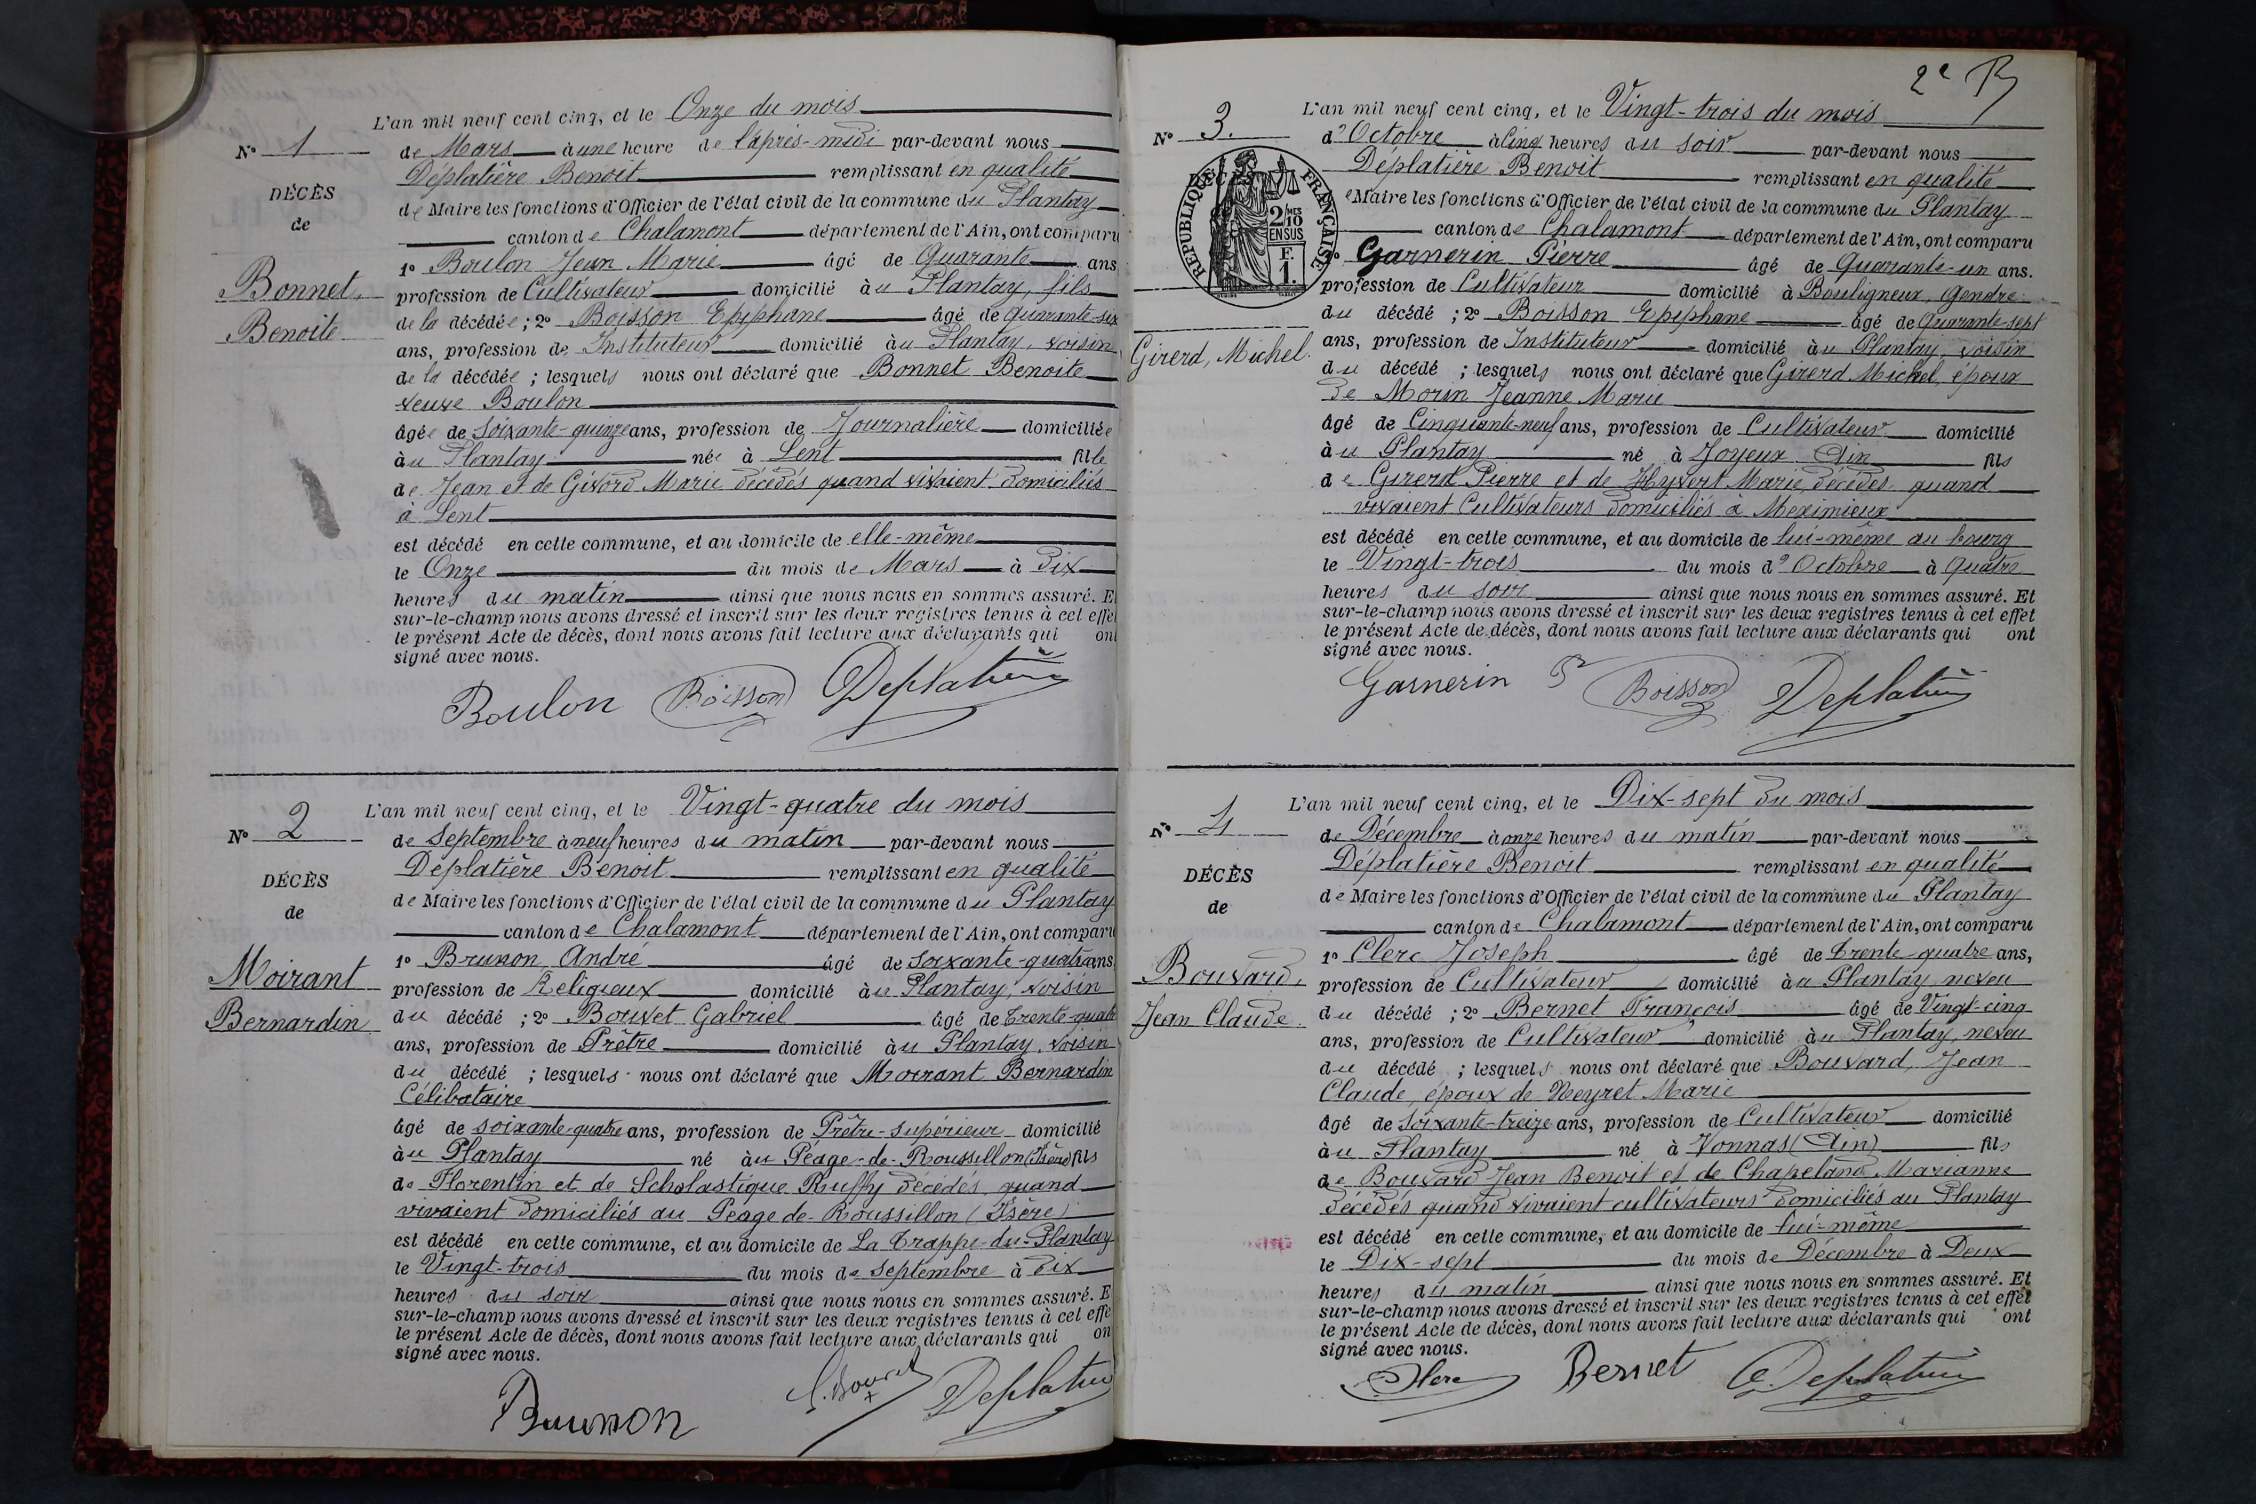 L'an mil neuf cent cinq, et le Onze du mois
N° 1
de Mars à une heure de l'après-midi par-devant nous
Déplatière Benoit remplissant en qualité
DÉCÈS
de Maire les fonctions d'Officier de l'état civil de la commune du Plantay
de
canton de Chalamont département de l'Ain, ont comparu
1° Boulon Jean Marie âgé de Quarante ans
Bonnet,
profession de Cultivateur domicilié au Plantay, fils
de la décédée ; 2° Boisson Epiphane âgé de Quarante-six
Benoite
ans, profession de Instituteur domicilié au Plantay, voisin
de la décédée ; lesquels nous ont déclaré que Bonnet Benoite
veuve Boulon
âgée de soixante-quinze ans, profession de Journalière domiciliée
au Plantay née à Lent fille
de Jean et de Givord Marie décédés quand vivaient domiciliés
à Lent
est décédé en cette commune, et au domicile de elle-même
le Onze du mois de Mars à Dix
heures du matin ainsi que nous nous en sommes assuré. E
sur-le-champ nous avons dressé et inscrit sur les deux registres tenus à cet effe
le présent Acte de décès, dont nous avons fait lecture aux déclarants qui ont
signé avec nous.
Boulon Boisson Deplatière
L'an mil neuf cent cinq, et le Vingt-quatre du mois
N° 2
de Septembre à neuf heures du matin par-devant nous
Déplatière Benoit remplissant en qualité
DÉCÈS
de Maire les fonctions d'Officier de l'état civil de la commune du Plantay
de
canton de Chalamont département de l'Ain, ont comparu
1° Brunon André âgé de soixante-quatre ans
Moirant
profession de Religieux domicilié au Plantay, voisin
Bernardin
du décédé ; 2° Bouvet Gabriel âgé de trente-quatre
ans, profession de Prêtre domicilié au Plantay, voisin
du décédé ; lesquels nous ont déclaré que Moirant Bernardin
Célibataire
âgé de soixante-quatre ans, profession de Prêtre-supérieur domicilié
au Plantay né au Péage-de-Roussillon (Isère) fils
de Florentin et de Scholastique Ruffy décédés quand
vivaient domiciliés au Péage-de-Roussillon (Isère)
est décédé en cette commune, et au domicile de La Trappe-du-Plantay
le Vingt-trois du mois de Septembre à Dix
heures du soir ainsi que nous nous en sommes assuré. E
sur-le-champ nous avons dressé et inscrit sur les deux registres tenus à cet effe
le présent Acte de décès, dont nous avons fait lecture aux déclarants qui on
signé avec nous.
Brunon G. Bouvet Deplatière
2e
L'an mil neuf cent cinq, et le Vingt-trois du mois
N° 3.
d'Octobre à Cinq heures du soir par-devant nous
Déplatière Benoit remplissant en qualité
RÉPUBLIQUE FRANÇAISE
2/10 MES EN SUS
F. 1.
e Maire les fonctions d'Officier de l'état civil de la commune du Plantay
canton de Chalamont département de l'Ain, ont comparu
Garnerin Pierre âgé de Quarante-un ans.
profession de Cultivateur domicilié à Bouligneux, gendre
du décédé ; 2° Boisson Epiphane âgé de Quarante-sept
Girerd, Michel.
ans, profession de Instituteur domicilié au Plantay, voisin
du décédé ; lesquels nous ont déclaré que Girerd Michel, époux
de Morin Jeanne Marie
âgé de Cinquante-neuf ans, profession de Cultivateur domicilié
au Plantay né à Joyeux Ain fils
de Girerd Pierre et de Hyvert Marie, décédés quand
vivaient Cultivateurs domiciliés à Meximieux
est décédé en cette commune, et au domicile de lui-même au bourg
le Vingt-trois du mois d'Octobre à Quatre
heures du soir ainsi que nous nous en sommes assuré. Et
sur-le-champ nous avons dressé et inscrit sur les deux registres tenus à cet effet
le présent Acte de décès, dont nous avons fait lecture aux déclarants qui ont
signé avec nous.
Garnerin P Boisson Deplatière
L'an mil neuf cent cinq, et le Dix-sept du mois
N° 4
de Décembre à onze heures du matin par-devant nous
Déplatière Benoit remplissant en qualité
DÉCÈS
de Maire les fonctions d'Officier de l'état civil de la commune du Plantay
de
canton de Chalamont département de l'Ain, ont comparu
1° Clerc Joseph âgé de trente-quatre ans,
Bouvard,
profession de Cultivateur domicilié au Plantay neveu
du décédé ; 2° Bernet François âgé de Vingt-cinq
Jean Claude.
ans, profession de Cultivateur domicilié au Plantay, neveu
du décédé ; lesquels nous ont déclaré que Bouvard, Jean
Claude, époux de Neyret Marie
âgé de soixante-treize ans, profession de Cultivateur domicilié
au Plantay né à Vonnas (Ain) fils
de Bouvard Jean Benoit et de Chapeland Marianne
décédés quand vivaient cultivateurs domiciliés au Plantay
est décédé en cette commune, et au domicile de lui-même
le Dix-sept du mois de Décembre à Deux
heures du matin ainsi que nous nous en sommes assuré. Et
sur-le-champ nous avons dressé et inscrit sur les deux registres tenus à cet effet
le présent Acte de décès, dont nous avons fait lecture aux déclarants qui ont
signé avec nous.
Clerc Bernet Deplatière